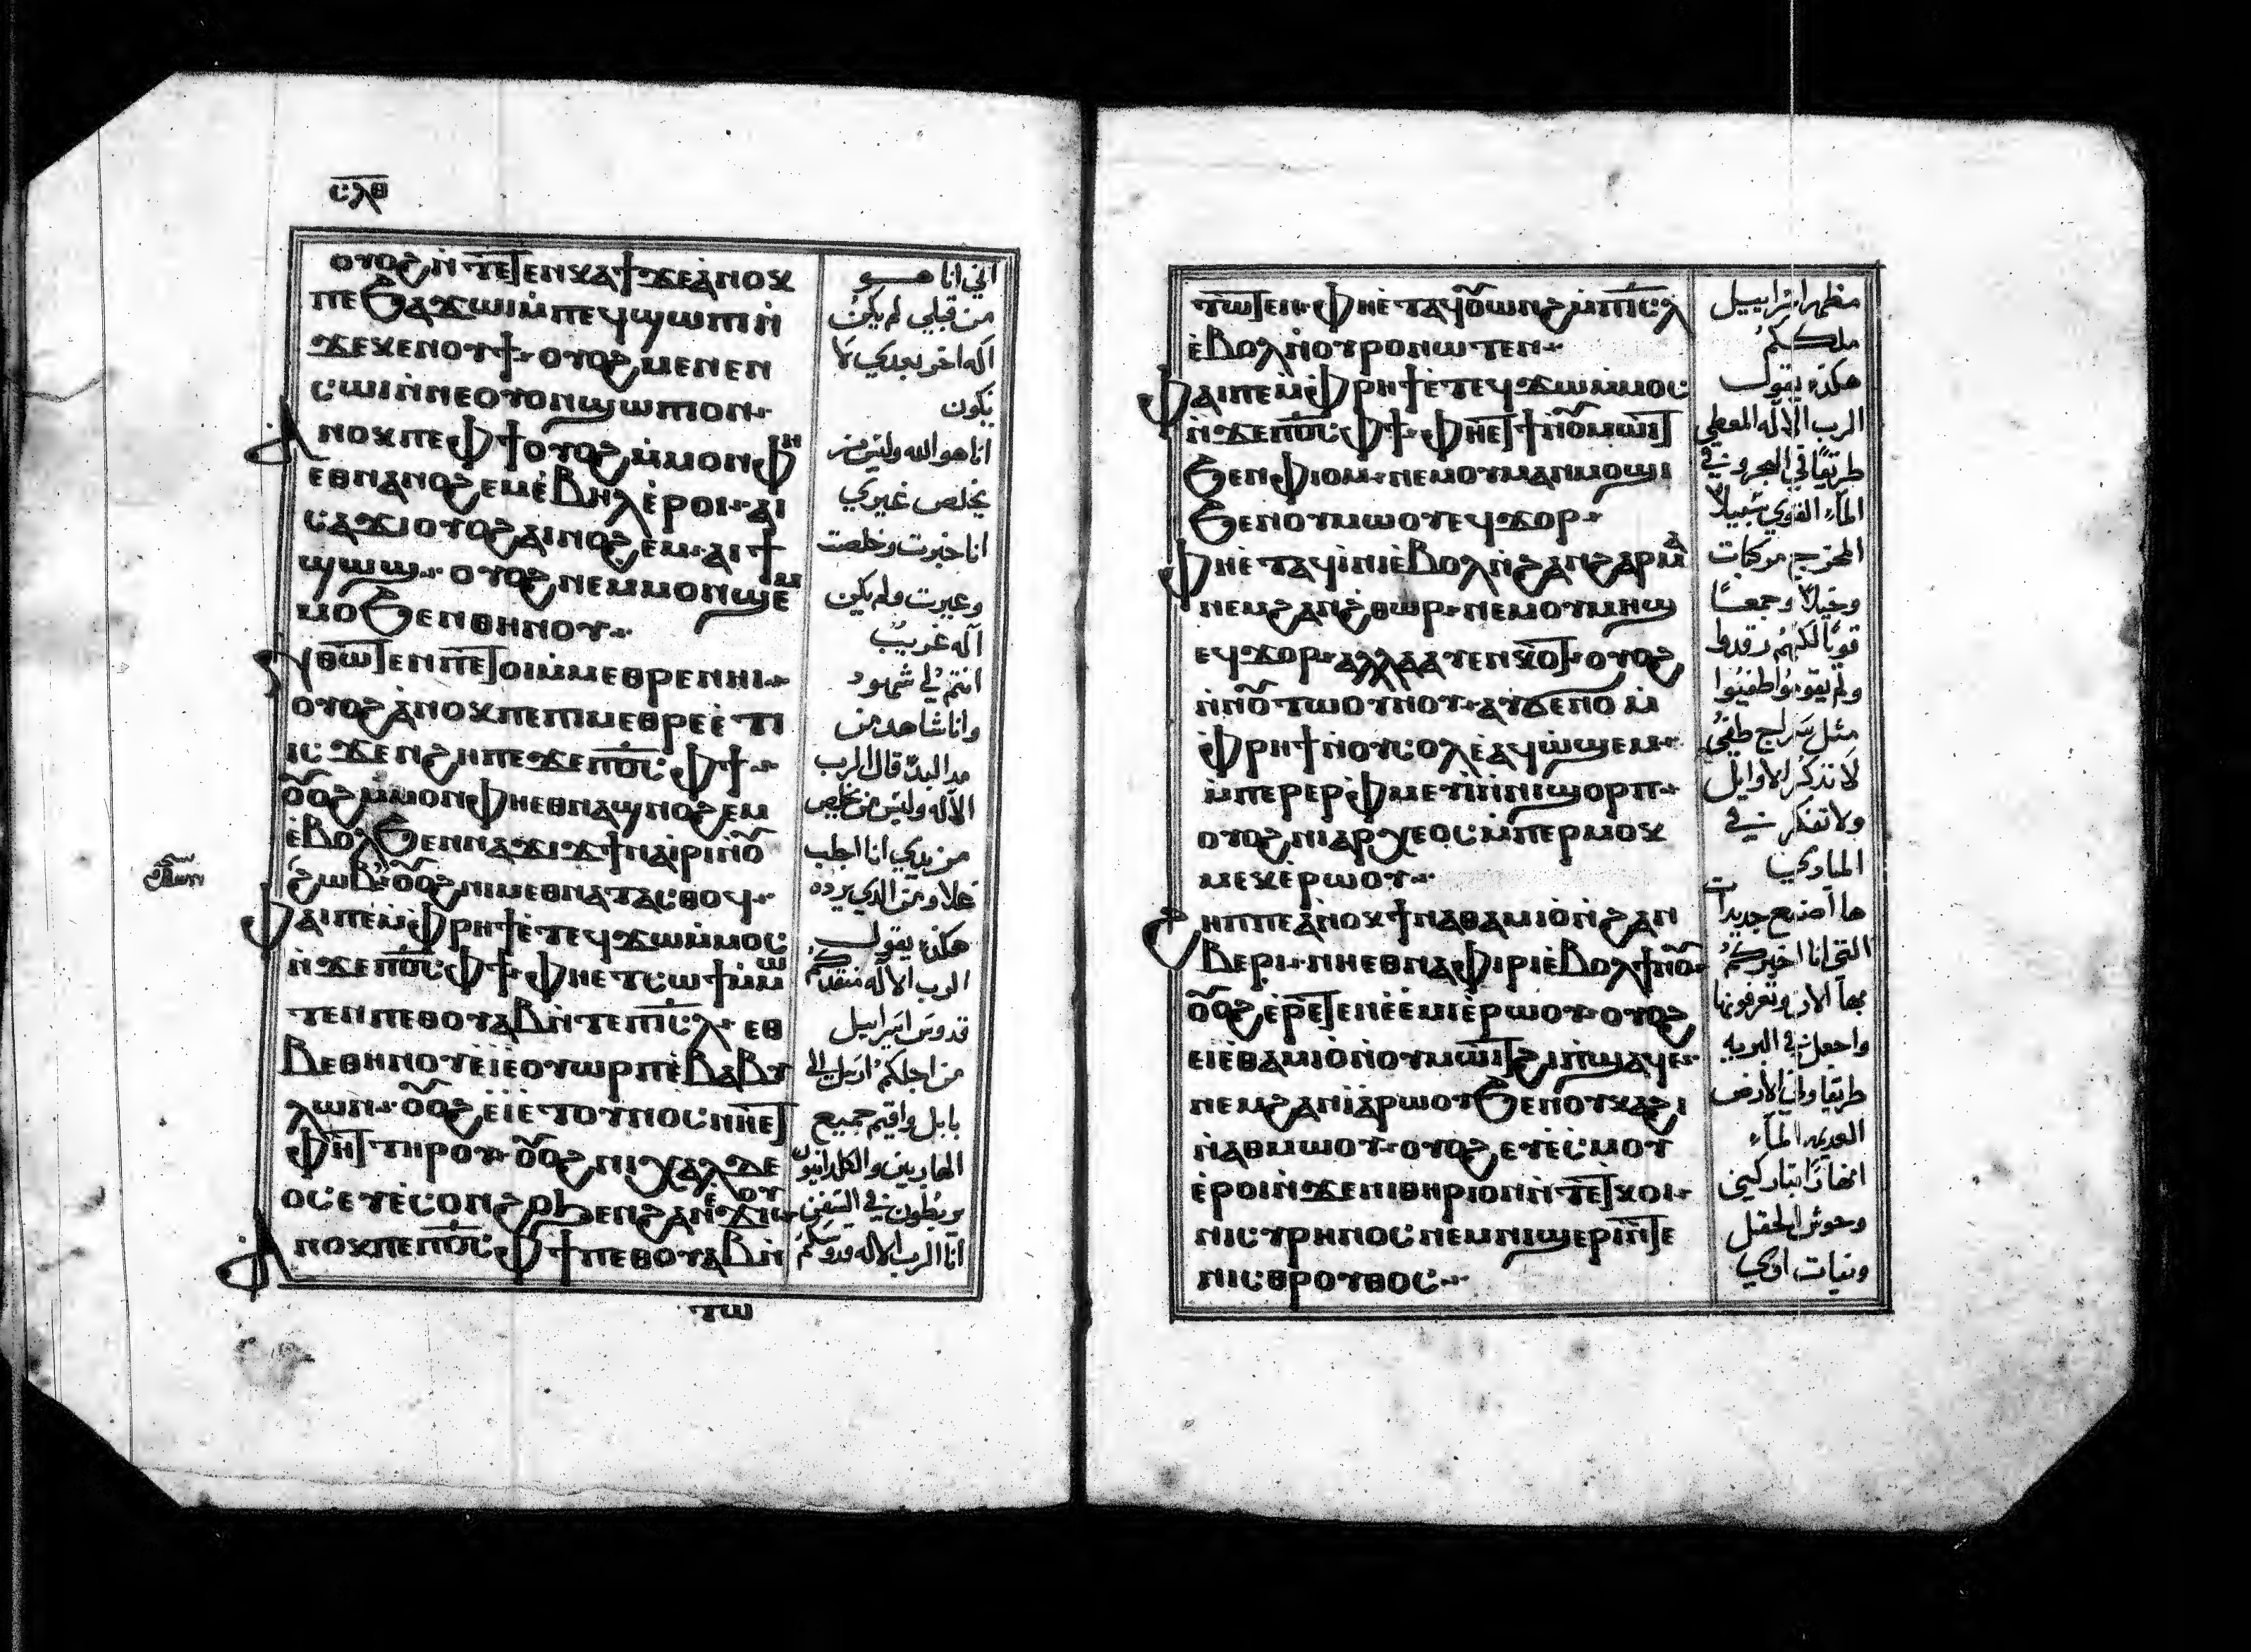 ⲥⲗⲑ
ⲟⲩⲟϩ ⲛ̀ⲧⲉⲧⲉⲛⲕⲁϯ ϫⲉ ⲁ̀ⲛⲟⲕ
ⲡⲉ ϧⲁϫⲱⲓ ⲙ̀ⲡⲉϥϣⲱⲡⲓ ⲛ̀
ϫⲉⲕⲉⲛⲟⲩϯ ⲟⲩⲟϩ ⲙⲉⲛⲉⲛ
ⲥⲱⲓ ⲛ̀ⲛⲉⲟⲩⲟⲛ ϣⲱⲡⲓ ⲟⲛ
ⲁⲛⲟⲕ ⲡⲉ ⲫϯ ⲟⲩⲟϩ ⲙ̀ⲙⲟⲛ ⲫⲏ
ⲉⲑⲛⲁⲛⲟϩⲉⲙ ⲉ̀ⲃⲏⲗ ⲉ̀ⲣⲟⲓ ⲁⲓ
ⲥⲁϫⲓ ⲟⲩⲟϩ ⲁⲓⲛⲟϩⲉⲙ ⲁⲓϯ
ϣⲱϣ ⲟⲩⲟϩ ⲛⲉⲙⲙⲟⲛ ϣⲉⲙ
ⲙⲟ ϧⲉⲛ ⲑⲏⲛⲟⲩ
ⲛⲑⲱⲧⲉⲛ ⲡⲉⲧⲟⲓ ⲙ̀ⲙⲉⲑⲣⲉ ⲛⲏⲓ
ⲟⲩⲟϩ ⲁ̀ⲛⲟⲕ ⲡⲉ ⲡⲓⲙⲉⲑⲣⲉ ⲉ̀ⲧⲓ
ⲓⲥϫⲉⲛ ϩⲏ ⲡⲉϫⲉ ⲡϭⲟⲓⲥ ⲫϯ
ⲟⲩⲟϩ ⲙ̀ⲙⲟⲛ ⲫⲏⲉⲑⲛⲁϣⲛⲟϩⲉⲙ
ⲉ̀ⲃⲟⲗϧⲉⲛ ⲛⲁϫⲓϫ ϯⲛⲁⲓⲣⲓ ⲛ̀ⲟⲩ
ϩⲱⲃ ⲟⲩⲟϩ ⲛⲓⲙ ⲉⲑⲛⲁⲧⲁⲥⲑⲟϥ
ⲫⲁⲓ ⲡⲉ ⲙ̀ⲫⲣⲏϯ ⲉ̀ⲧⲉϥϫⲱ ⲙ̀ⲙⲟⲥ
ⲛ̀ϫⲉ ⲡϭⲟⲓⲥ ⲫϯ ⲫⲏⲉⲧⲥⲱϯ ⲙ̀ⲙⲱ
ⲧⲉⲛ ⲡⲉⲑⲟⲩⲁⲃ ⲛ̀ⲧⲉ ⲡⲓⲥⲗ ⲉⲑ
ⲃⲉⲑⲏⲛⲟⲩ ⲉⲓⲉ̀ⲟⲩⲱⲣⲡ ⲉ̀ⲃⲁⲃⲩ
ⲗⲱⲛ ⲟⲩⲟϩ ⲉⲓⲉ̀ⲧⲟⲩⲛⲟⲥ ⲛⲏⲉⲧ
ⲫⲏⲧ ⲧⲏⲣⲟⲩ ⲟⲩⲟϩ ⲛⲓⲭⲁⲗⲇⲉ
ⲟⲥ ⲉⲩⲉ̀ⲥⲟⲛϩⲟⲩ ϧⲉⲛ ϩⲁⲛⲉϫⲏⲟⲩ
ⲁⲛⲟⲕ ⲡⲉ ⲡϭⲟⲓⲥ ⲫϯ ⲡⲉⲑⲟⲩⲁⲃ ⲛ̀
ⲧⲱ
اني انا هو
من قبلي لم يكن
اله اخر بعدي لا
يكون
انا هو الله وليس من
يخلص غيري
انا خبرت وخلصت
وعيرت ولم يكن
اله غريب
انتم لي شهود
وانا شاهد من
مدا البدء قال الرب
الاله وليس من يخلص
من يدي انا اجلب
عملا ومن الذي يرده
هكذا يقول
الرب الاله منقذكم
قدوس اسراييل
من اجلكم ارسل الي
بابل واقيم جميع
الهاربين والكلدانيون
يربطون في السفن
انا الرب الاله قدوسكم
ⲧⲱⲧⲉⲛ ⲫⲏⲉ̀ⲧⲁϥⲟⲩⲱⲛϩ ⲙ̀ⲡⲓⲥⲗ
ⲉ̀ⲃⲟⲗ ⲛ̀ⲟⲩⲣⲟ ⲛⲱⲧⲉⲛ
ⲫⲁⲓ ⲡⲉ ⲙ̀ⲫⲣⲏϯ ⲉ̀ⲧⲉϥϫⲱ ⲙ̀ⲙⲟⲥ
ⲛ̀ϫⲉ ⲡϭⲟⲓⲥ ⲫϯ ⲫⲏⲉⲧϯ ⲛ̀ⲟⲩⲙⲱⲓⲧ
ϧⲉⲛ ⲫⲓⲟⲙ ⲛⲉⲙ ⲟⲩⲙⲁⲛⲙⲟϣⲓ
ϧⲉⲛ ⲟⲩⲙⲱⲟⲩ ⲉϥϫⲟⲣ
ⲫⲏⲉ̀ⲧⲁϥⲓⲛⲓ ⲉ̀ⲃⲟⲗ ⲛ̀ϩⲁⲛϩⲁⲣⲙⲁ
ⲛⲉⲙ ϩⲁⲛϩ̀ⲑⲱⲣ ⲛⲉⲙ ⲟⲩⲙⲏϣ
ⲉϥϫⲟⲣ ⲁⲗⲗⲁ ⲁⲩⲉⲛⲕⲟⲧ ⲟⲩⲟϩ
ⲛ̀ⲛⲟⲩⲧⲱⲟⲩⲛⲟⲩ ⲁⲩϭⲉⲛⲟ ⲙ̀
ⲫⲣⲏϯ ⲛ̀ⲟⲩⲥⲟⲗ ⲉ̀ⲁϥϣ̀ϣⲉⲙ
ⲙ̀ⲡⲉⲣⲉⲣⲫⲙⲉⲩⲓ̀ ⲛ̀ⲛⲓϣⲟⲣⲡ
ⲟⲩⲟϩ ⲛⲓⲁⲣⲭⲉⲟⲥ ⲙ̀ⲡⲉⲣⲙⲟⲕ
ⲙⲉⲕ ⲉ̀ⲣⲱⲟⲩ
ϩⲏⲡⲡⲉ ⲁ̀ⲛⲟⲕ ϯⲛⲁⲑⲁⲙⲓⲟ̀ ⲛ̀ϩⲁⲛ
ⲃⲉⲣⲓ ⲛⲏⲉⲑⲛⲁⲫⲓⲣⲓ ⲉ̀ⲃⲟⲗ ϯⲛⲟⲩ
ⲟⲩⲟϩ ⲉ̀ⲣⲉⲧⲉⲛⲉ̀ⲉ̀ⲙⲓ ⲉ̀ⲣⲱⲟⲩ ⲟⲩⲟϩ
ⲉⲓⲉ̀ⲑⲁⲙⲓⲟ̀ ⲛ̀ⲟⲩⲙⲱⲓⲧ ϩⲓ ⲡ̀ϣⲁϥⲉ
ⲛⲉⲙ ϩⲁⲛⲓⲁ̀ⲣⲱⲟⲩ ϧⲉⲛ ⲟⲩⲕⲁϩⲓ
ⲛ̀ⲁⲑⲙⲱⲟⲩ ⲟⲩⲟϩ ⲉⲩⲉ̀ⲥⲙⲟⲩ
ⲉ̀ⲣⲟⲓ ⲛ̀ϫⲉ ⲛⲓⲑⲏⲣⲓⲟⲛ ⲛ̀ⲧⲉ ⲧⲕⲟⲓ
ⲛⲓⲥⲩⲣⲏⲛⲟⲥ ⲛⲉⲙ ⲛⲓϣⲉⲣⲓ ⲛ̀ⲧⲉ
ⲛⲓⲥⲑⲣⲟⲩⲑⲟⲥ
مظهر اسراييل
ملككم
هكذا يقول
الرب الاله المعطي
طريقا في البحر وفي
الماء القوي سبيلا
المخرج مركبات
وخيلا وجمعا
قويا لكنهم رقدوا
ولم يقوموا طفئوا
مثل سراج طفي
لا تذكر الاوايل
ولا تفكر في
المبادي
ها اصنع جديدات
التي انا اخبركم
بها الان وتعرفونها
واجعل في البريه
طريقا وفي الارض
العديمه الماء
انهارا تباركني
وحوش الحقل
وبنات اوي